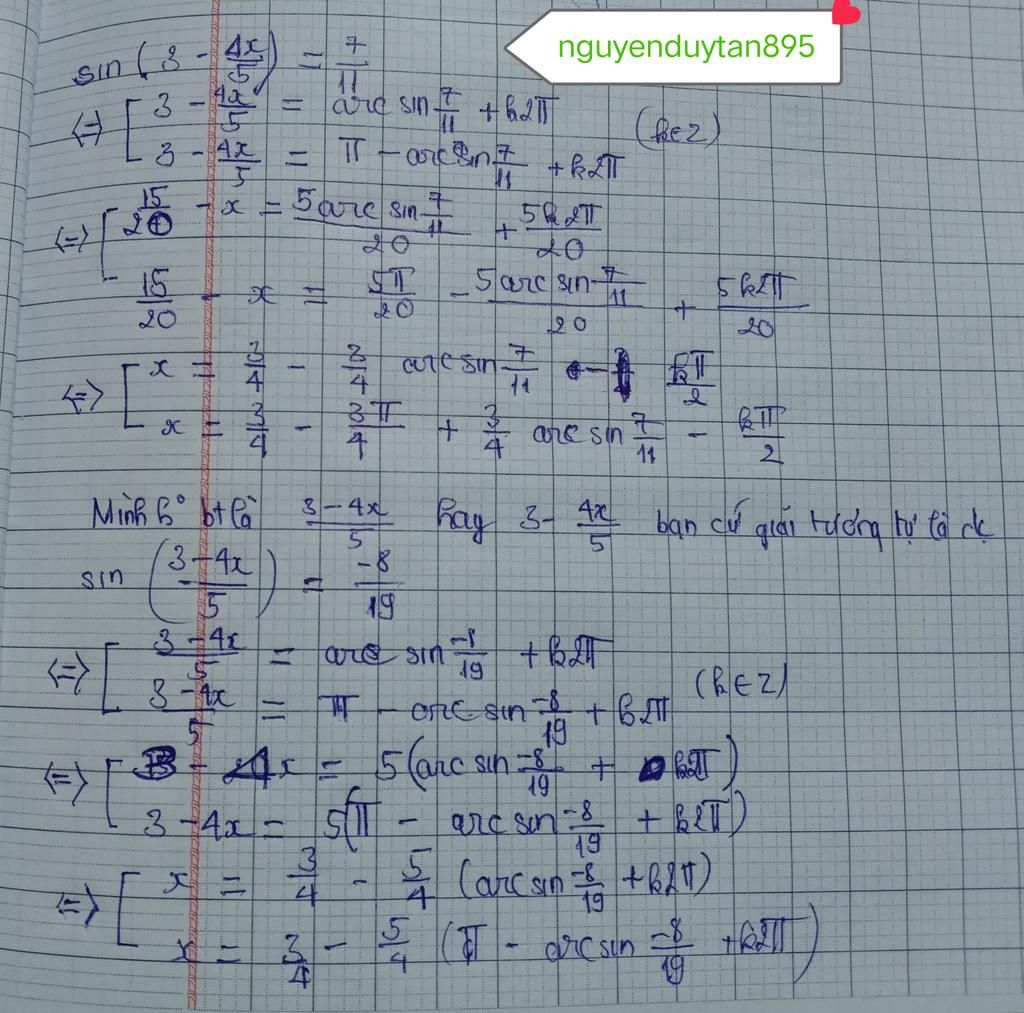 nguyenduytan895
sin(3 - 4x/5) = 7/11
<=> [ 3 - 4x/5 = arc sin 7/11 + k2π (k∈Z)
3 - 4x/5 = π - arc sin 7/11 + k2π
<=> [ 15/20 - x = 5 arc sin 7/11 / 20 + 5k2π/20
15/20 - x = 5π/20 - 5 arc sin 7/11 / 20 + 5k2π/20
<=> [ x = 3/4 - 3/4 arc sin 7/11 - kπ/2
x = 3/4 - 3π/4 + 3/4 arc sin 7/11 - kπ/2
Mình k° bt là 3-4x/5 hay 3- 4x/5 bạn cứ giải tương tự là đc
sin (3-4x/5) = -8/19
<=> [ 3-4x/5 = arc sin -8/19 + k2π (k∈Z)
3-4x/5 = π - arc sin -8/19 + k2π
<=> [ 3 - 4x = 5(arc sin -8/19 + k2π)
3 - 4x = 5(π - arc sin -8/19 + k2π)
<=> [ x = 3/4 - 5/4 (arc sin -8/19 + k2π)
x = 3/4 - 5/4 (π - arc sin -8/19 + k2π)